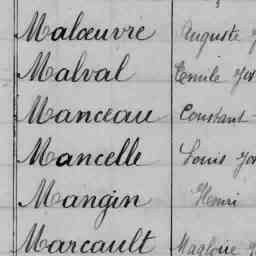 Malœuvre Auguste
Malval Emile
Manceau Constant
Mancelle Louis
Mangin Henri
Marcault Magloire